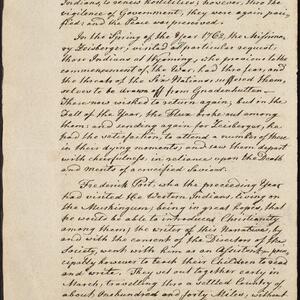 Indians, to renew Hostilities; however, thro the
vigilence of Government, they were again paci-
fied; and the Peace was preserved.
In the Spring of the Year 1762, the Missiona-
ry Zeisberger, visited at particular request
those Indians at Wyoming, who previous to the
commencement of the War, had thro fear, and
the threats of the Six Nations, suffered them-
selves to be drawn off from Gnadenhutten —
These now wished to return again; but in the
Fall of the Year, the Flux broke out among
them; and sending again for Zeisberger, he
had the satisfaction, to attend a number of these
in their dying moments; and saw them depart
with cheerfulness, in reliance upon the Death
and merits of a crucified Saviour.
Frederick Post, who the preceeding Year
had visited the Western Indians, living on
the Muskingum; being in great hopes, that
he would be able to introduce Christianity
among them; the writer of this Narrative, by
and with the consent of the Directors of the
Society, went with him as an Assistant, prin-
cipally however to teach their Children to read
and write. They set out together early in
March, travelling thro a settled Country of
about One hundred and forty Miles, without